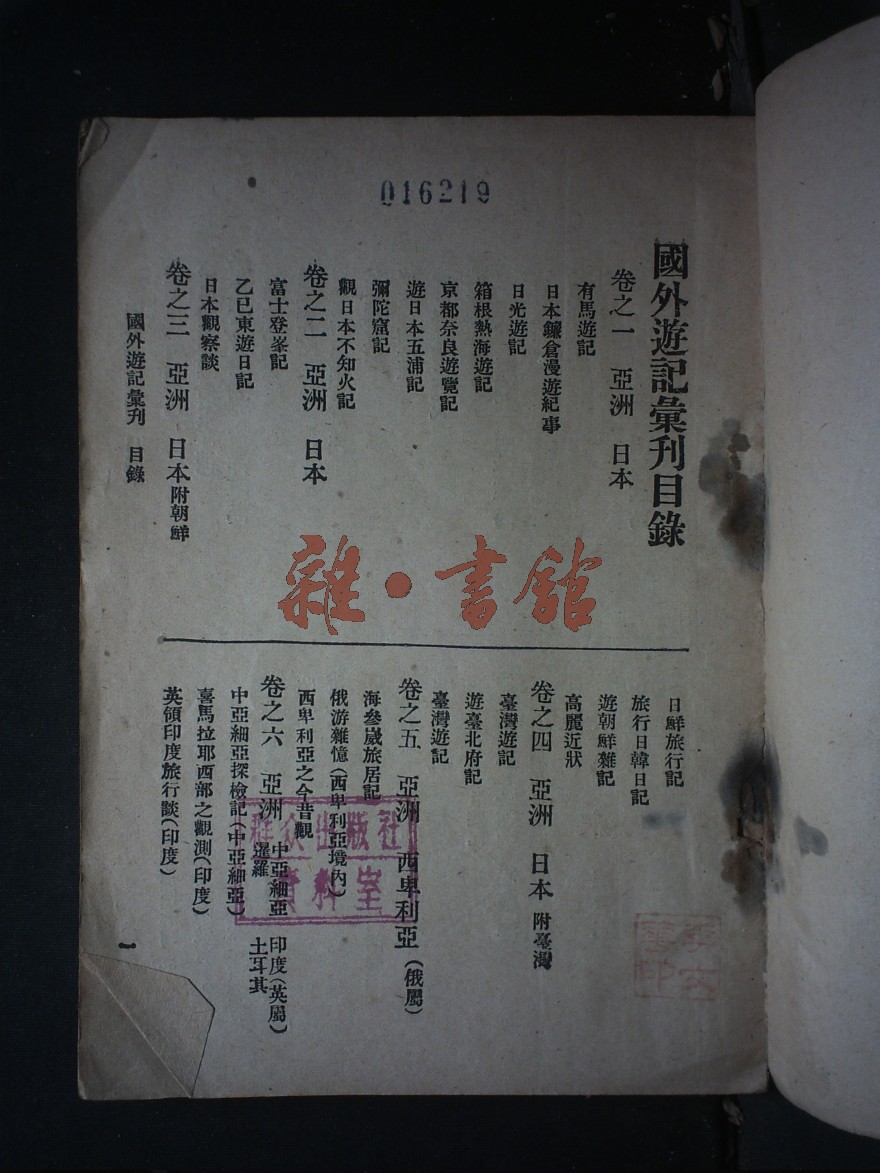 016219
國外遊記彙刊目錄
卷之一 亞洲 日本
有馬遊記
日本鐮倉漫遊紀事
日光遊記
箱根熱海遊記
京都奈良遊覽記
遊日本五浦記
彌陀窟記
觀日本不知火記
卷之二 亞洲 日本
富士登峯記
乙巳東遊日記
日本觀察談
卷之三 亞洲 日本附朝鮮
國外遊記彙刊 目錄
日鮮旅行記
旅行日韓日記
遊朝鮮雜記
高麗近狀
卷之四 亞洲 日本 附臺灣
臺灣遊記
遊臺北府記
臺灣遊記
卷之五 亞洲 西卑利亞(俄屬)
海參崴旅居記
俄游雜憶(西卑利亞境內)
西卑利亞之今昔觀
卷之六 亞洲 中亞細亞 印度(英屬) 暹羅 土耳其
中亞細亞探檢記(中亞細亞)
喜馬拉耶西部之觀測(印度)
英領印度旅行談(印度)
一
雜·書館
群众出版社
資料室